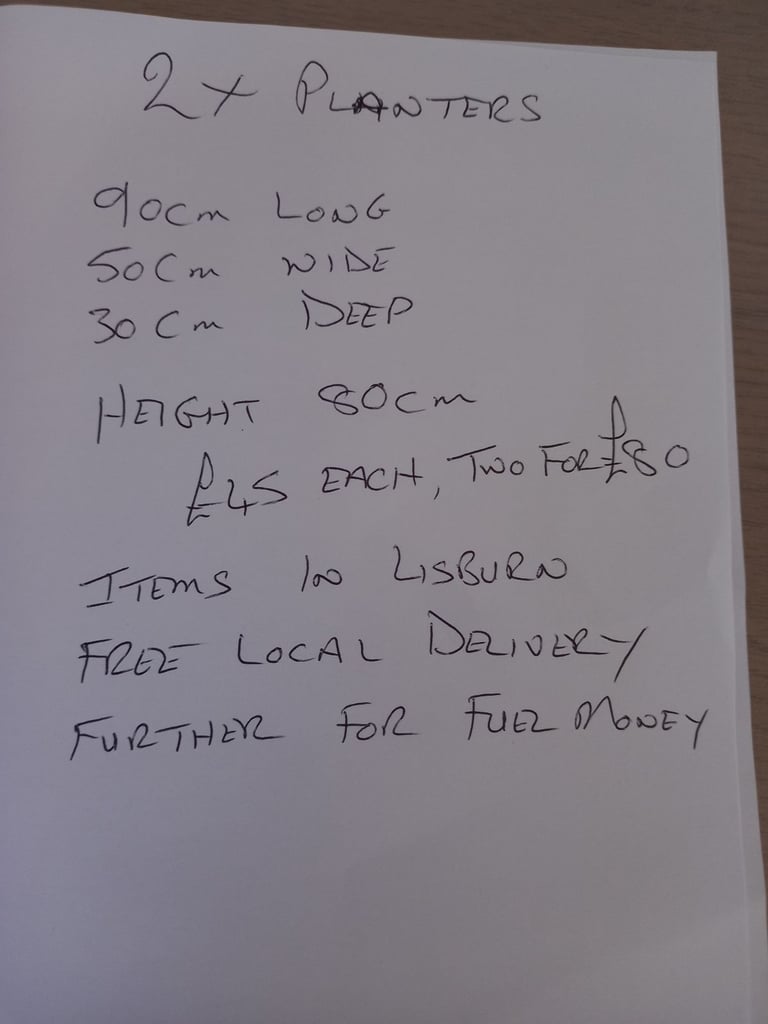 2x PLANTERS
90cm LONG
50cm WIDE
30cm DEEP
HEIGHT 80cm
£45 EACH, TWO FOR £80
ITEMS IN LISBURN
FREE LOCAL DELIVERY
FURTHER FOR FUEL MONEY